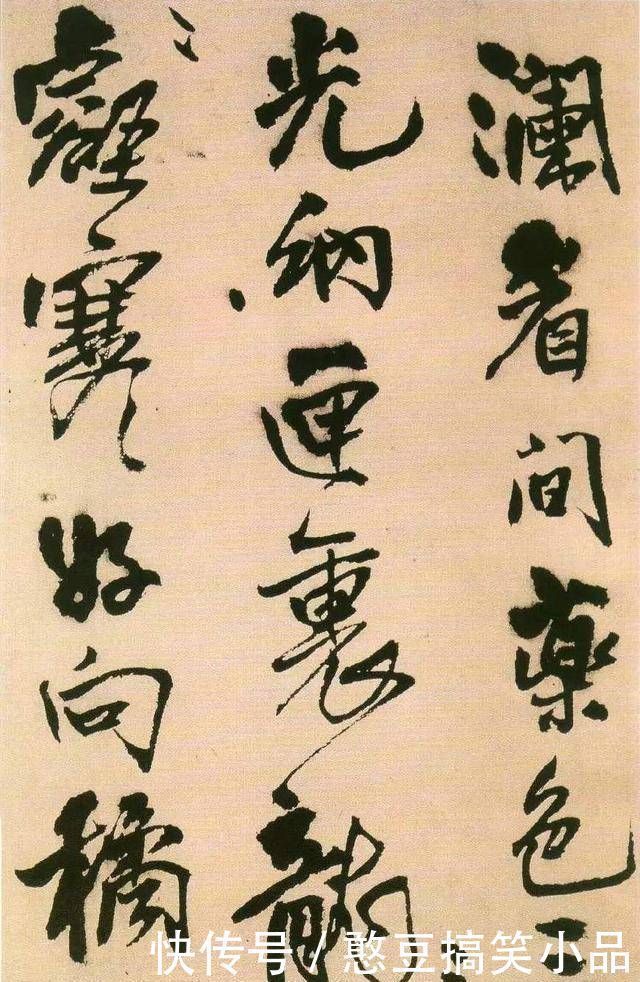 瀾看间藥色
光納匣裏龍
寒好向橘
快传号/憨豆搞笑小品